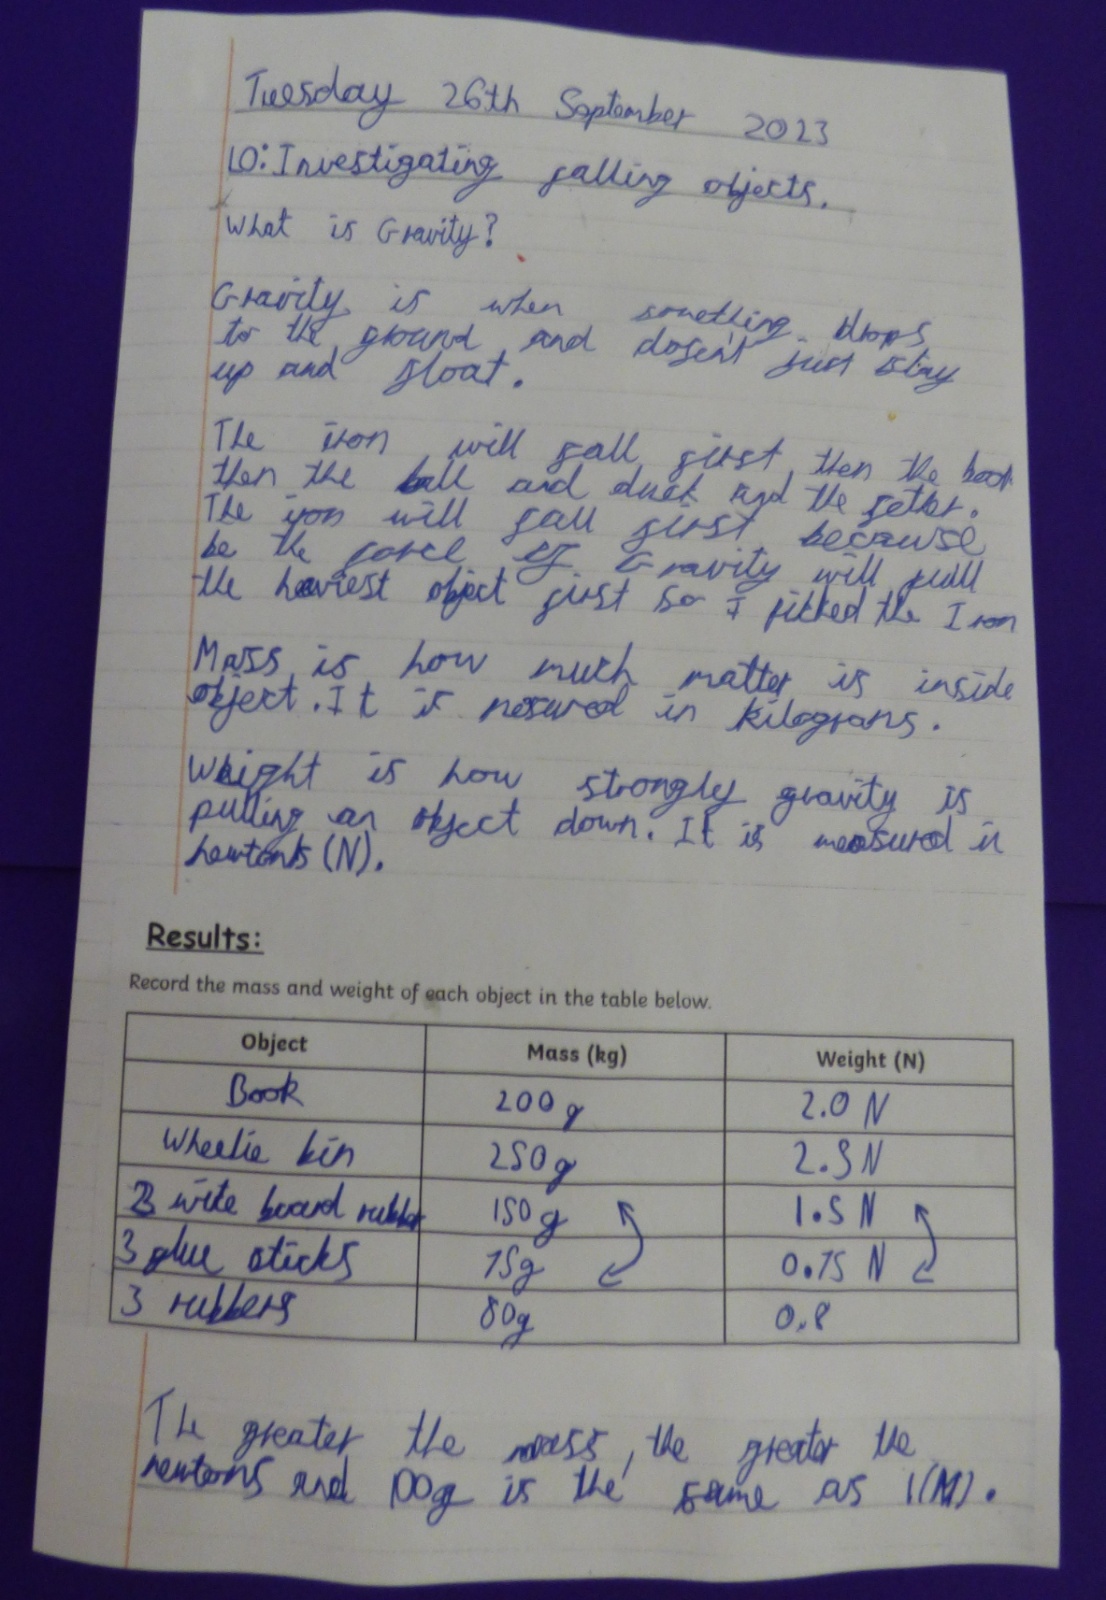 Tuesday 26th September 2023
LO: Investigating falling objects.
What is Gravity?
Gravity is when something drops
to the ground and dosen't just stay
up and float.
The iron will fall first, then the book
then the ball and duck and the fether.
The iron will fall first because
be the force of Gravity will pull
the heaviest object first so I picked the Iron
Mass is how much matter is inside
object. It is mesured in kilograms.
Weight is how strongly gravity is
pulling an object down. It is measured in
newtons (N).
Results:
Record the mass and weight of each object in the table below.
Object Mass (kg) Weight (N)
Book 200g 2.0 N
Wheelie bin 250g 2.5 N
3 write board rubber 150g 1.5 N
3 glue sticks 75g 0.75 N
3 rubbers 80g 0.8
The greater the mass, the greater the
newtons and 100g is the same as 1(N).